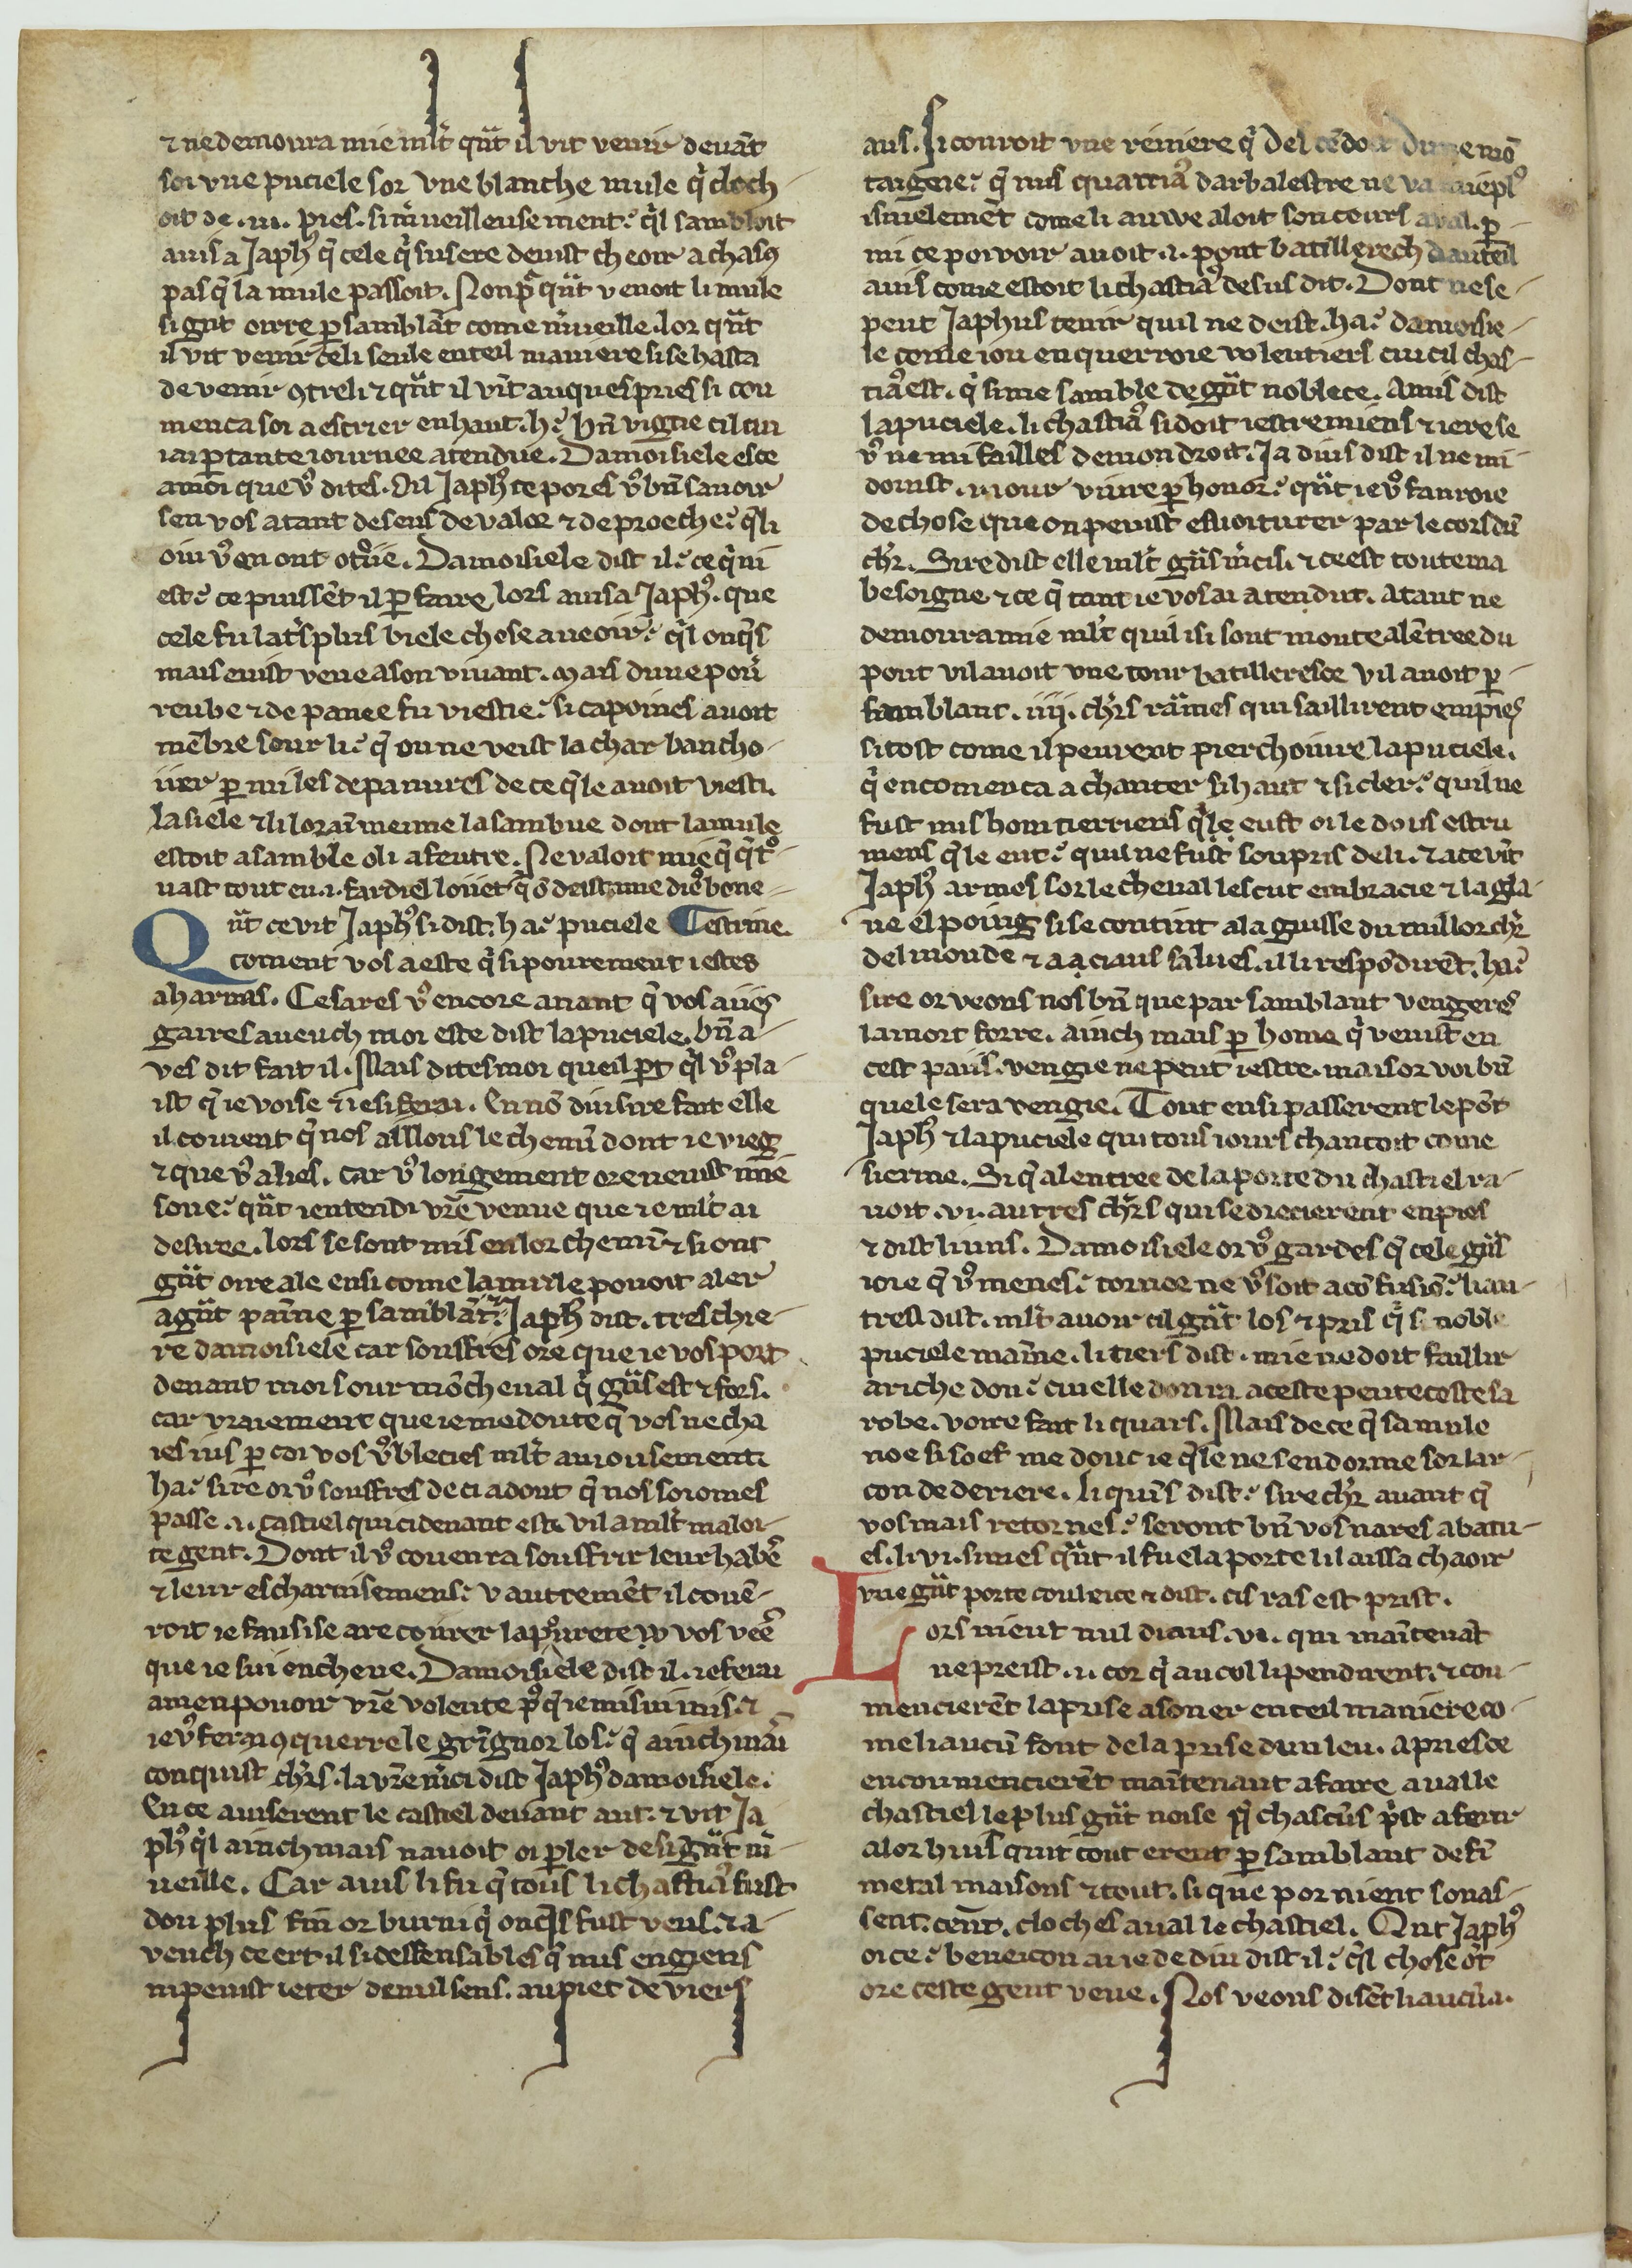 ⁊ ne demoura mie ml̃t qũt il vit venir deuãt
soi vne puciele sor vne blanche mule q̃ cloch
oit de .iii. pies. si m̃ueilleusement: q̃l sambloit
auis a Japhꝰ q̃ cele q̃ sus ere deuist cheoir a chasꝯ
pas q̃ la mule passoit. Nonp̃ qũt venoit li mule
si gñt oirre ꝑ samblãt come m̃ueille. lor qũt
il vit venir celi seule en teil maniere si se hasta
de venir ꝯtre li ⁊ qũt il vĩt auques pries si cou
menca soi a escrier en haut. he: bñ vigne cil cui
iai ꝑ tante iournee atendue. Damoisiele esce
a moi que vꝰ dites. Oil Japhꝰ ce pores vꝰ bñ sauoir
sen vos a tant de sens de valor ⁊ de proeche: q̃ li
oiu vꝰ en ont otrïie. Damoisiele dist il: ce q̃ ni
est: ce puissẽt il ꝑfaire lors auis a Japhꝰ. que
cele fu la tr̃s plus biele chose a ueoir: q̃l onq̃s
mais euist veue a son viuant. Mais dune pour̃
reube ⁊ de panee fu viestie: si ca poines auoit
mẽbre sour li: q̃ on ne veist la char bancho
iier ꝑ mi les depanures de ce q̃le auoit viesti.
La siele ⁊ li lorai᷒ meime la sambue dont la mule
estoit asamble oli afeutre. Ne valoit mie q̃ q̃ tꝰ
uast tout en .i. fardiel loiiet
Qũt ce vit Japhꝰ si dist: ha: puciele Cestine
coment vos a este q̃ si pourement iestes
a harnas. Ce sares vꝰ encore auant q̃ vos aiies
gaires aueuch moi este dist la puciele. bñ a
ves dit fait il. Mais dites moi queil ꝑt q̃l vꝰ pla
ist q̃ ie voise ⁊ ie si ferai. En nõ diu sire fait elle
il couient q̃ nos aillons le chemĩ dont ie vieg
⁊ que vꝰ alies. car vꝰ longement ore neuist mie
soue: qũt ientendi vr̃e venue que ie ml̃t ai
desiree. lors se sont mis en lor chemĩ ⁊ si ont
gũt oire ale ensi come la mule pouoit aler
a gũt paĩne ꝑ samblãt: Japhꝰ dist. tres chie
re damoisiele car souffres ore que ie vos port
deuant moi sour mõ cheual q̃ gñs est ⁊ fors.
car vraiement que ie me doute q̃ vos ne cha
ies ius ꝑ coi vos vꝰ blecies ml̃t anoiusement.
ha: sire or vꝰ souffres de ci adont q̃ nos soiomes
passe .i. castiel qui ci deuant est. v il a ml̃t maloi
te gent. Dont il vꝰ couenra souffrir leur habẽ
⁊ leur escharnisemens: v autremẽt il couẽ
roit ie fausise a recourer la purete w vos veẽ
que ie sui encheue. Damoisiele dist il. ie ferai
a men pouoir vr̃e volente pꝰ q̃ ie mi sui mis. ⁊
ie vꝰ ferai ꝯquerre le gri᷒gnor los: q̃ ainch mai
conquist chr̃s. la vr̃e m̃ci dist Japhꝰ damoisiele.
En ce auiserent le castiel deuant aus. ⁊ vit Ja
phꝰ q̃l ainch mais nauoit oi ꝑler de si gũt m̃
ueille. Car auis li fu q̃ tous li chastiaꝰ fust
dou plus fin or burni q̃ onq̃s fust veus. ⁊ a
veuch ce ert il si deffensables q̃ nus engiens
ni peuist ieter de nul sens. au piet de viers
aus. Si couroit vne reiuiere q̃ desc̃doit dune mõ
taigne: q̃ nus quarriaꝰ darbalestre ne va mie plꝰ
isnielemẽt come li auwe aloit son cours aual. ꝑ
mi ce poivoir auoit .i. pont batillerech dauteil
auis come estoit li chastiaꝰ desus dit. Dont ne se
peut Japhus tenir quil ne deist. ha: damoisie
le come iou enquerroie volentiers cui cil chas
tiaꝰ est. q̃ si me samble de gũt noblece. Amis dist
la puciele. li chastiaꝰ si doit iestre miens ⁊ iere se
vꝰ ne mi failles de mon droit. Ja dius dist il ne mi
doinst .i. iour viure ꝑ honor: qũt ie vꝰ fauroie
de chose que on peuist esuoiturer par le cors dũ
chr̃. Sire dist elle ml̃t gñs m̃cis. ⁊ ce est toute ma
besoigne ⁊ ce q̃ tant ie vos ai atendut. Atant ne
demoura mie ml̃t quil isi sont monte a lẽtree du
pont v il auoit vne tour batilleresce v il auoit ꝑ
samblant .iiij. chr̃s rãmes qui saillirent en pies
sitost come il peurent pierchoiure la puciele.
q̃ encomenca a chanter si haut ⁊ si cler: quil ne
fust nus hom tierriens q̃ le eust oi le dous estru
mens q̃ le eut: quil ne fust soupris de li. ⁊ a ce vĩt
Japhꝰ armes sor le cheual lescut embracie ⁊ la gla
iue el poing si se contint a la guisse du millor chr̃
del monde ⁊ a aciaus salues. il li respõdirẽt. ha:
sire or veons nos bñ que par samblant vengeres
la mort forre. ainch mais ꝑ home q̃ venist en
cest pais. vengie ne peut iestre. mais or voi bñ
quele sera vengie. Tout ensi passerent le põt
Japhꝰ ⁊ la puciele qui tous iours chantoit come
sierine. Si q̃ a lentree de la porte du chastiel ra
uoit .vi. autres chr̃s qui se drecierent en pies
⁊ dist li uns. Damoisiele or vꝰ gardes q̃ cele gñs
ioie q̃ vꝰ menes: tornee ne vꝰ soit a cõfusiõ: li au
tres dist. ml̃t auoir cil gũt los ⁊ pris q̃ si noble
puciele mai᷒ne. li tiers dist. mie ne doit faillir
a riche don: cui elle donra a ceste pentecoste sa
robe. voire fait li quars. Mais de ce q̃ sa mule
noe si soef me douc ie q̃ le ne sendorme sor lar
con de deriere. li quĩs dist: sire chr̃ auant q̃
vos mais retornes: seront bñ vos nares abatu
es. li vi. simes qũt il fu el a porte li laissa chaoir
vne gũt porte couleice ⁊ dist. cis ras est prist.
Lors nient nul di aus .vi. qui mai᷒tenãt
ne preist .i. cor q̃ au col li pendirent. ⁊ cou
mencierẽt la prise a soner en teil maniere co
me li aucũ font de la prise dun leu. Apries ce
encoumencierẽt mai᷒tenant a faire aual le
chastiel le plus gũt noise q̃ chascũs p̃st a ferir
a lor huis qui tout erent ꝑ samblant de fĩ
metal maisons ⁊ tout. si que por nient sonas
sent .cenr. cloches aual le chastiel. Qũt Japhꝰ
oi ce: beneicon aie de diu dist il: q̃l chose õt
ore ceste gent veue. Nos veons disẽt li aucũ .i.